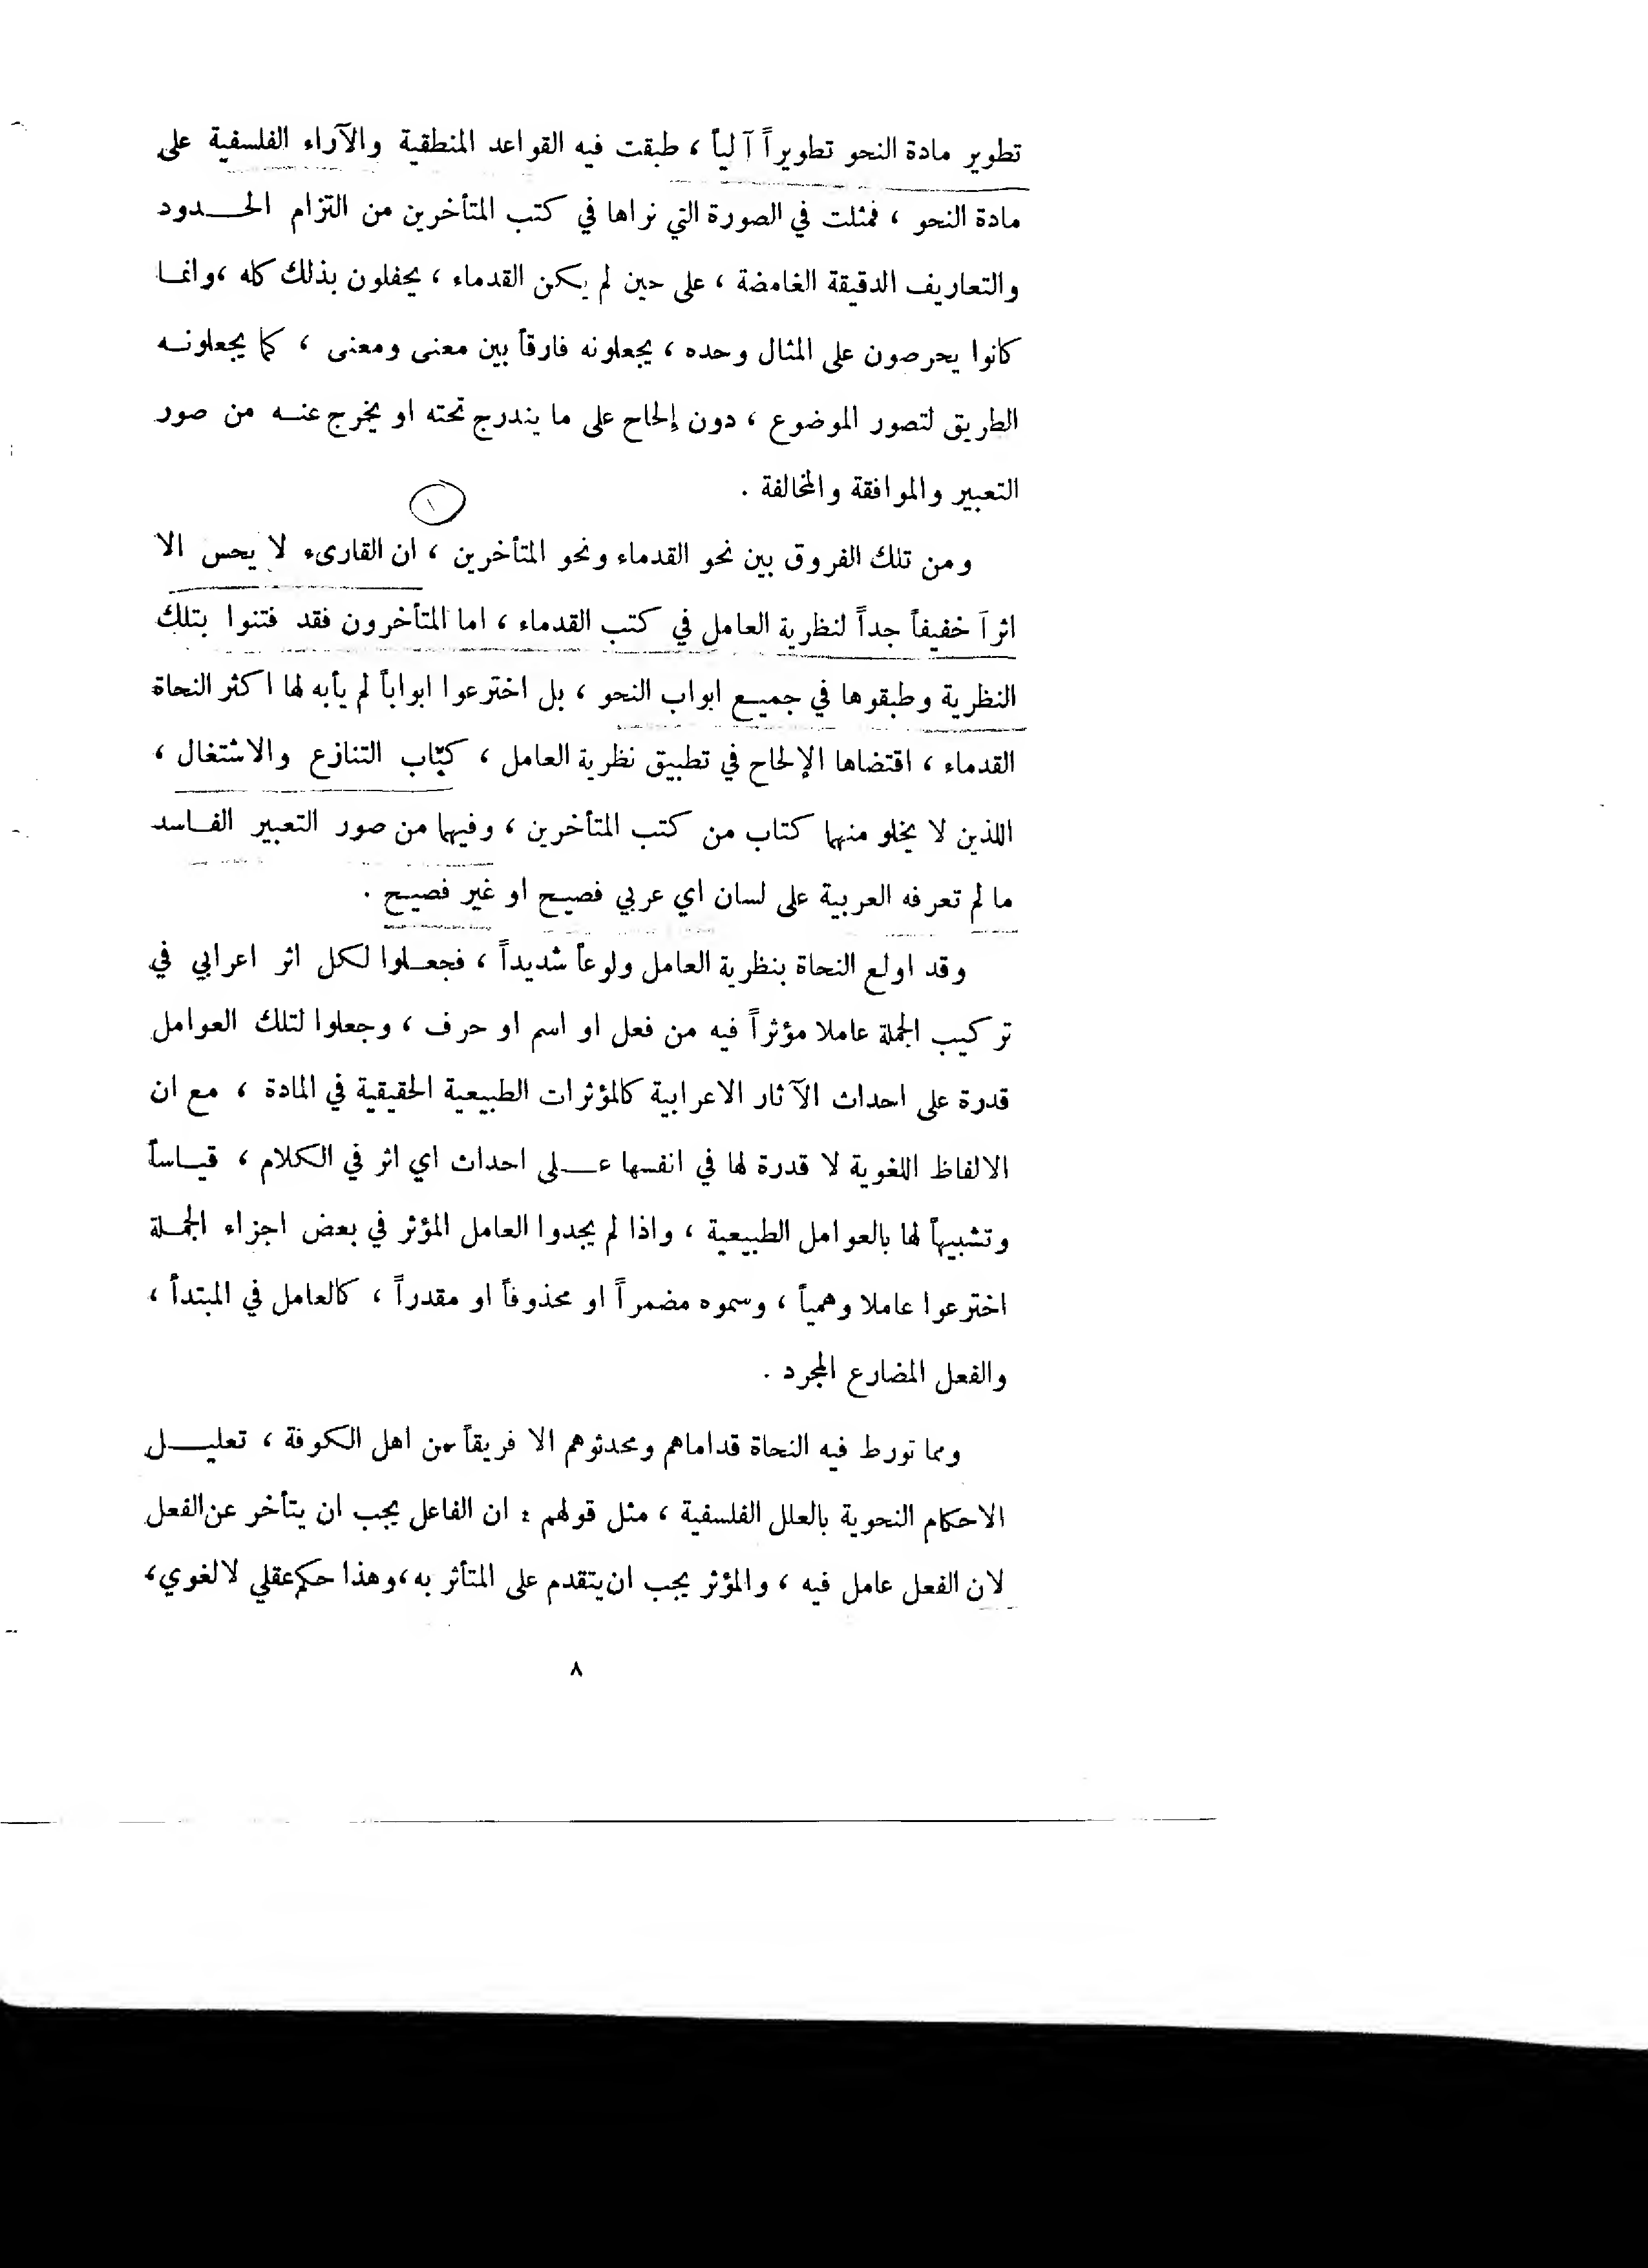 تطوير مادة النحو تطويراً آلياً ، طبقت فيه القواعد المنطقية والآراء الفلسفية على
مادة النحو ، فمثلت في الصورة التي نراها في كتب المتأخرين من التزام الحـــدود
والتعاريف الدقيقة الغامضة ، على حين لم يكن القدماء ، يحفلون بذلك كله ، وانمـا
كانوا يحرصون على المثال وحده ، يجعلونه فارقاً بين معنى ومعنى ، كما يجعلونـه
الطريق لتصور الموضوع ، دون إلحاح على ما يندرج تحته او يخرج عنـه من صور
التعبير والموافقة والمخالفة .
١
ومن تلك الفروق بين نحو القدماء ونحو المتأخرين ، ان القارىء لا يحس الا
اثراً خفيفاً جداً لنظرية العامل في كتب القدماء ، اما المتأخرون فقد فتنوا بتلك
النظرية وطبقوها في جميـع ابواب النحو ، بل اخترعوا ابواباً لم يأبه لها اكثر النحاة
القدماء ، اقتضاها الإلحاح في تطبيق نظرية العامل ، كبّاب التنازع والاشتغال ،
اللذين لا يخلو منهما كتاب من كتب المتأخرين ، وفيهما من صور التعبير الفـاسد
ما لم تعرفه العربية على لسان اي عربي فصيـح او غير فصيـح .
وقد اولع النحاة بنظرية العامل ولوعاً شديداً ، فجعـلوا لكل اثر اعرابي في
تركيب الجملة عاملا مؤثراً فيه من فعل او اسم او حرف ، وجعلوا لتلك العوامل
قدرة على احداث الآثار الاعرابية كالمؤثرات الطبيعية الحقيقية في المادة ، مع ان
الالفاظ اللغوية لا قدرة لها في انفسها عـــلى احداث اي اثر في الكلام ، قيـاساً
وتشبيهاً لها بالعوامل الطبيعية ، واذا لم يجدوا العامل المؤثر في بعض اجزاء الجمـلة
اخترعوا عاملا وهمياً ، وسموه مضمراً او محذوفاً او مقدراً ، كالعامل في المبتدأ ،
والفعل المضارع المجرد .
ومما تورط فيه النحاة قداماهم ومحدثوهم الا فريقاً من اهل الكوفة ، تعليـــل
الاحكام النحوية بالعلل الفلسفية ، مثل قولهم : ان الفاعل يجب ان يتأخر عن الفعل
لان الفعل عامل فيه ، والمؤثر يجب ان يتقدم على المتأثر به ، وهذا حكم عقلي لا لغوي ،
٨